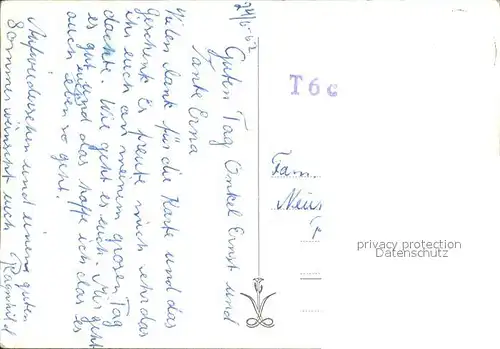 24/5-62
Guten Tag Onkel Ernst und
Tante Erna
Vielen dank für die Karte und das
geschenk. Es freute mich sehr das
ihr euch an meinem grosen Tag
dachte. Wie geht es euch. Mir geht
es gut und das hoffe ich das es
auch eben so geht.
Aufwiedersehen und einen guten
Sommer wünscht euch
Ragnhild
T6c
Fam.
Neus
privacy protection